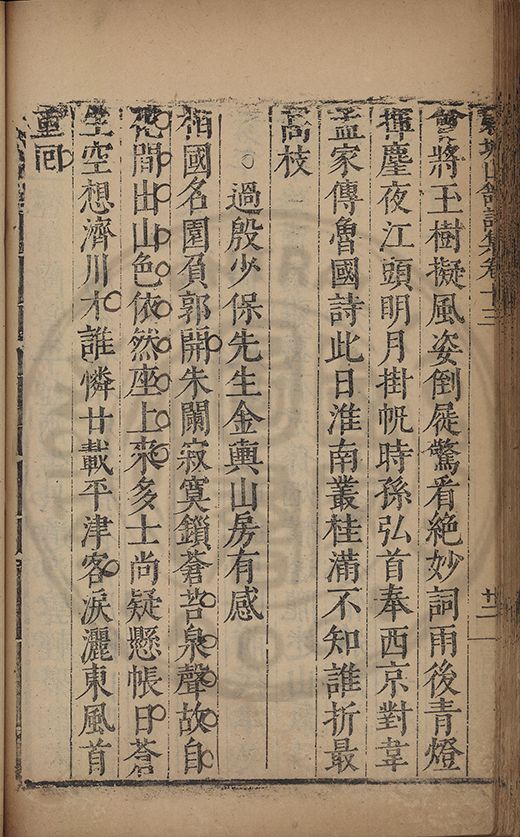 山館詩集卷十三
廿二
會將玉樹擬風姿倒屣驚看絶妙詞雨後青燈
揮塵夜江頭明月掛帆時孫弘首奉西京對韋
孟家傳魯國詩此日淮南叢桂滿不知誰折最
高枝
過殷少保先生金輿山房有感
相國名園負郭開朱闌寂寞鎖蒼苔泉聲故自
花間出山色依然座上來多士尚疑懸帳日蒼
生空想濟川才誰憐廿載平津客淚灑東風首
重回